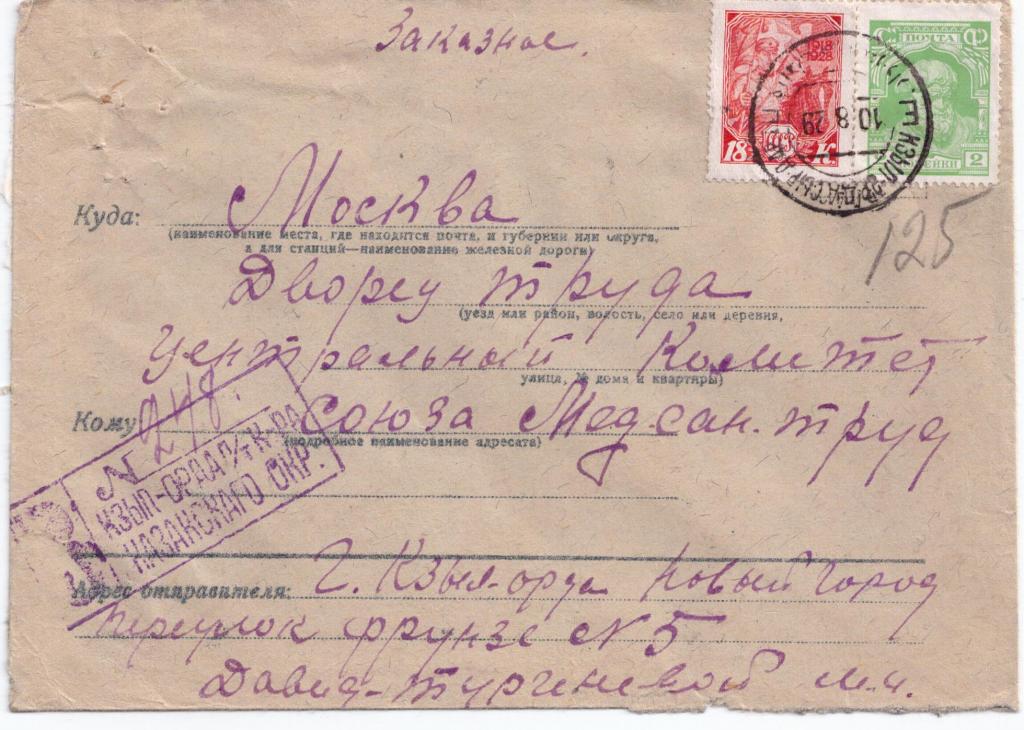 Заказное.
1918
1928
18 К.
ПОЧТА
2
10 8 29
КЗЫЛ-ОРДА
125
Куда: Москва
(наименование места, где находится почта, и губернии или округа,
а для станций—наименование железной дороги)
Дворец труда
(уезд или район, волость, село или деревня,
Центральный Комитет
улица, № дома и квартиры)
Кому Союза Медсан. труд
(подробное наименование адресата)
N 248.
КЗЫЛ-ОРДА
КАЗАКСКАГО ОКР.
Адрес отправителя: г. Кзыл-орда новый город
Переулок Фрунзе N 5
Давид-Тургеневой м.и.